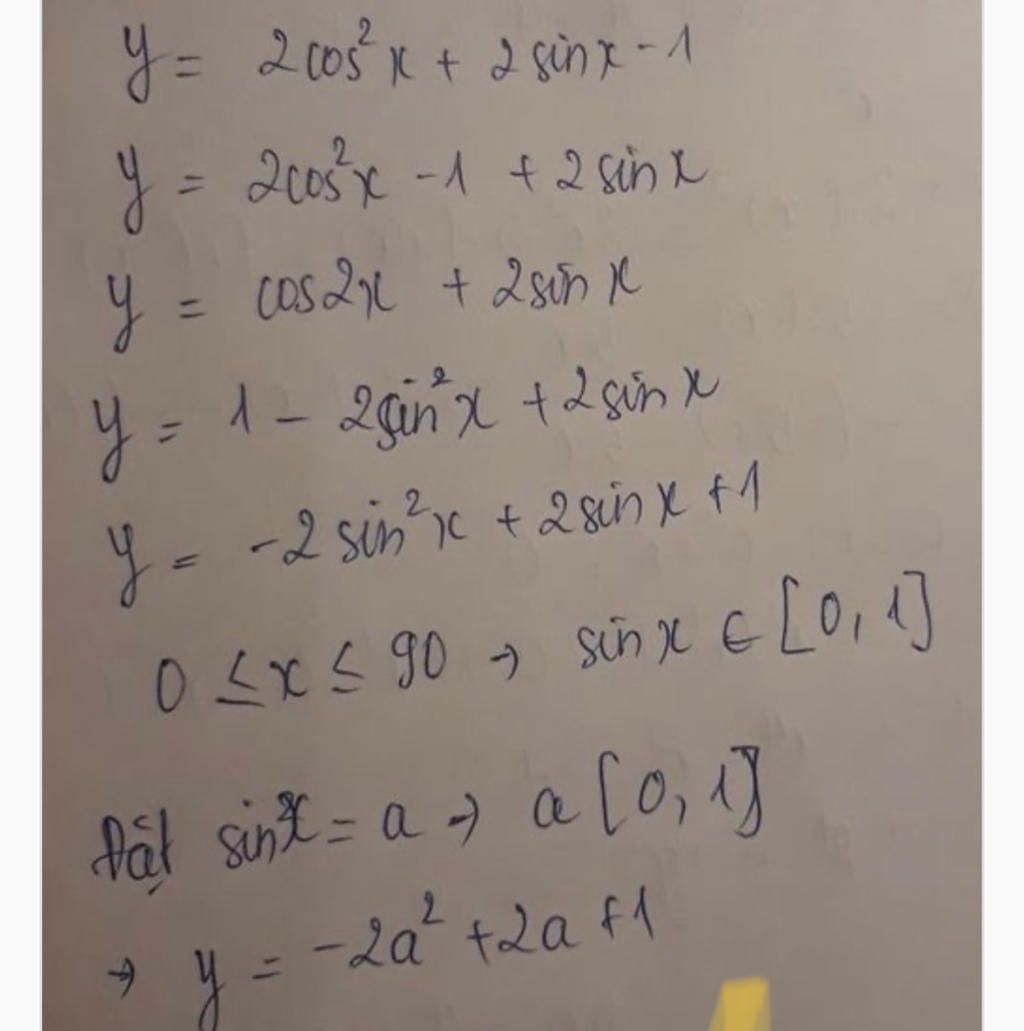 y = 2cos²x + 2sinx - 1
y = 2cos²x - 1 + 2sinx
y = cos2x + 2sinx
y = 1 - 2sin²x + 2sinx
y = -2sin²x + 2sinx + 1
0 ≤ x ≤ 90 → sinx ∈ [0, 1]
Đặt sinx = a → a [0, 1]
→ y = -2a² + 2a + 1